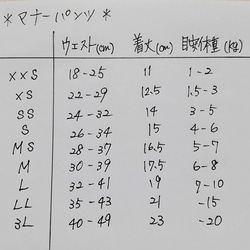 ＊マナーパンツ＊
ウエスト(cm) 着丈(cm) 目安体重(kg)
××S 18-25 11 1-2
×S 22-29 12.5 1.5-3
SS 24-32 14 3-5
S 26-34 15 4-6
MS 28-37 16.5 5-7
M 30-39 17.5 6-8
L 32-41 19 9-10
LL 35-43 21 -15
3L 40-49 23 -20